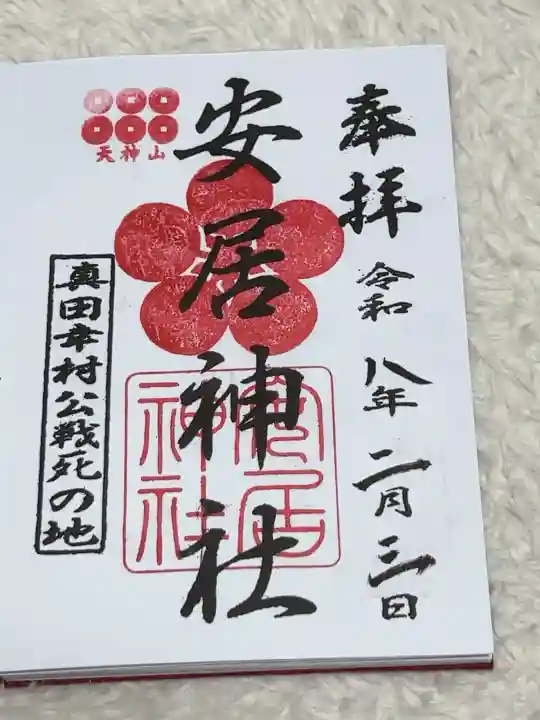 奉拝
令和八年二月三日
安居神社
天神山
真田幸村公戦死の地
安居
神社